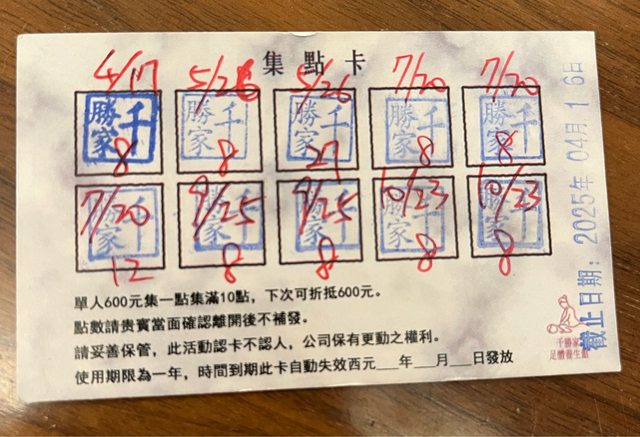 集點卡
4/17 5/26 5/26 7/20 7/20
千勝家 千勝家 千勝家 千勝家 千勝家
8 8 27 8 8
7/20 9/25 9/25 10/23 10/23
千勝家 千勝家 千勝家 千勝家 千勝家
12 8 8 8 8
單人600元集一點集滿10點，下次可折抵600元。
點數請貴賓當面確認離開後不補發。
請妥善保管，此活動認卡不認人，公司保有更動之權利。
使用期限為一年，時間到期此卡自動失效西元___年___月___日發放
截止日期：2025年 04月 16日
千勝家
足體養生館